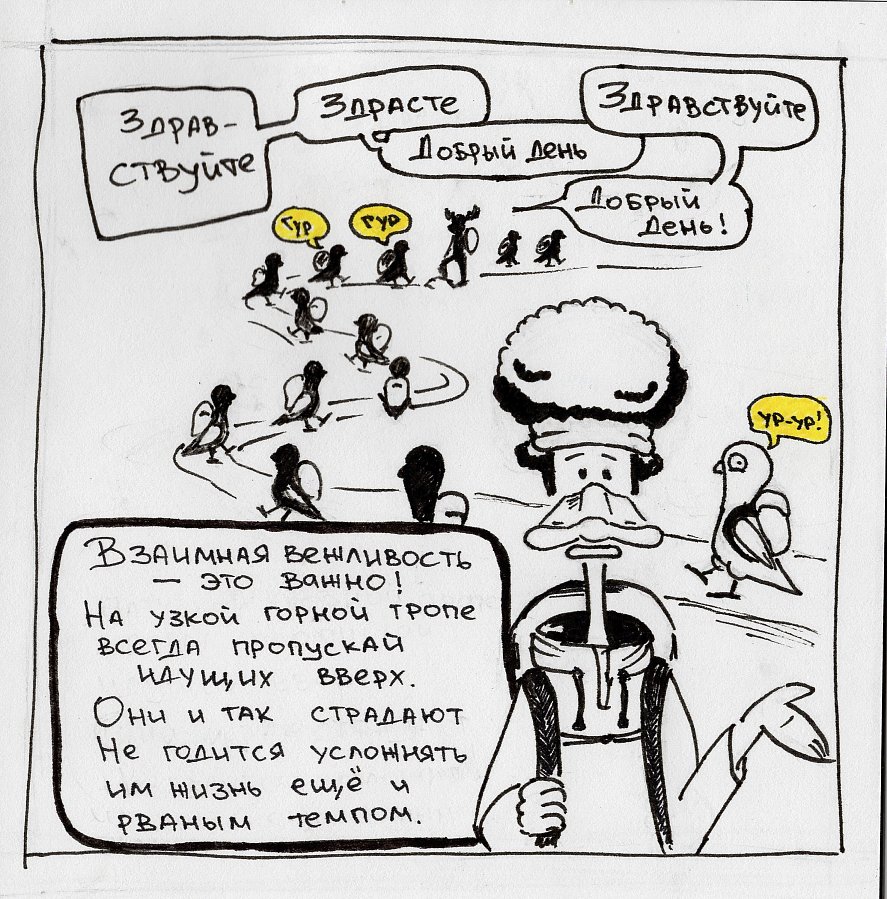 Здрав-
ствуйте
Здрасте
Добрый день
Здравствуйте
Добрый
день!
гур
гур
ур-ур!
Взаимная вежливость
— это важно!
На узкой горной тропе
всегда пропускай
идущих вверх.
Они и так страдают
Не годится усложнять
им жизнь ещё и
рваным темпом.